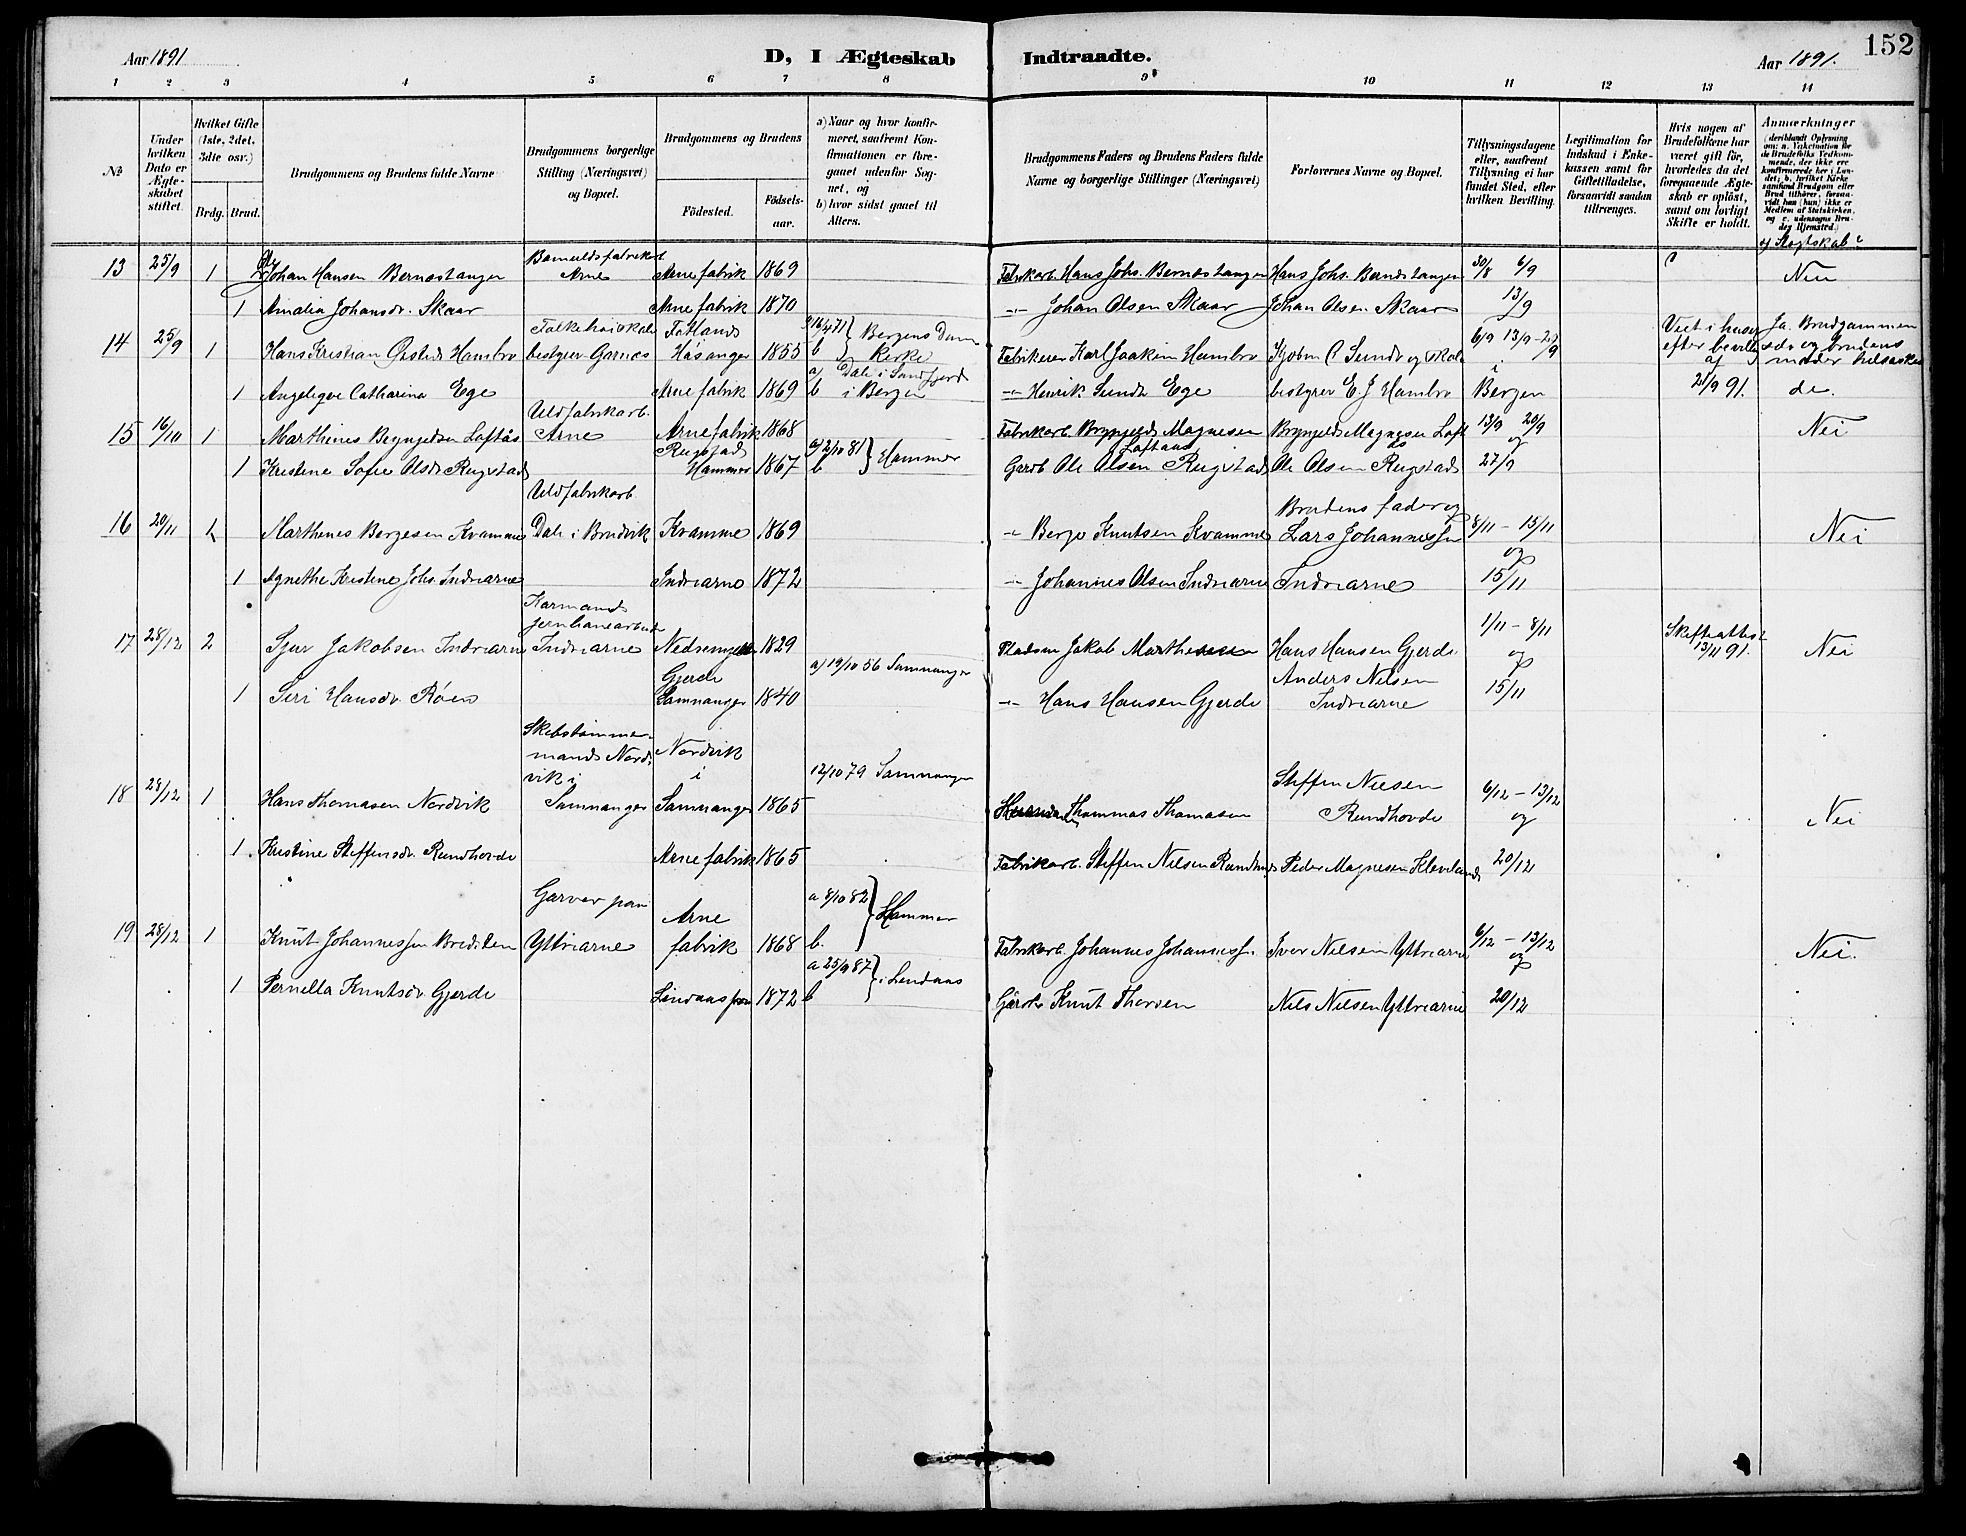 152
Aar 1891
D, I Ægteskab Indtraadte.
Aar 1891.
1 2 3 4 5 6 7 8 9 10 11 12 13 14
№
Under hvilken Dato er Ægteskabet stiftet.
Hvilket Gifte (1ste, 2det, 3die osv.)
Brdg. Brud.
Brudgommens og Brudens fulde Navne
Brudgommens borgerlige Stilling (Næringsvei) og Bopæl.
Brudgommens og Brudens
Fødested.
Fødselsaar.
a) Naar og hvor konfirmeret, saafremt Konfirmationen er foregaaet udenfor Sognet, og
b) hvor sidst gaaet til Alters.
Brudgommens Faders og Brudens Faders fulde Navne og borgerlige Stillinger (Næringsvei)
Forlovernes Navne og Bopæl.
Tillysningsdagene eller, saafremt Tillysning ei har fundet Sted, efter hvilken Bevilling.
Legitimation for Indskud i Enkekassen samt for Giftetilladelse, forsaavidt saadan tiltrænges.
Hvis nogen af Brudefolkene har været gift før, hvorledes da det foregaaende Ægteskab er opløst, samt om lovligt Skifte er holdt.
Anmærkninger
(deriblandt Oplysning om: a. Vakcination for de Brudefolks Vedkommende, der ikke ere konfirmerede her i Landet; b. hvilket Kirkesamfund Brudgom eller Brud tilhører, forsaavidt han (hun) ikke er Medlem af Statskirken, og c. udensogns Brudes Hjemsted.)
13 25/9 1 Johan Hansen Bernestangen Arne Arnefabrik 1869 Fabrikarb. Hans Johs. Bernestangen Hans Johs. Bernestangen 30/8 6/9 Nei
1 Amalia Johansdr. Skaar Arnefabrik 1870 Johan Olsen Skaar Johan Olsen Skaar 13/9
14 25/9 1 Hans Kristian Ørsted Hambro bestyrer Garnes Hosanger 1855 b Bergens Dom Kirke Karl Joakim Hambro 6/9 13/9
1 Angelique Catharina Ege Arnefabrik 1869 a) Dale i Søndfjord b i Bergen Henrik Sundt Ege bestyrer E J Hambro i Bergen 21/9 91. de.
15 16/10 1 Marthenes Brynjelsen Loftås Uldfabrikarb. Arne Arnefabrik 1868 Fabrikarb. Brynjeld Magnesen Loftaas 13/9 20/9 og Nei
1 Kristine Sofie Olsdr Rugstad Rugstad Hammer 1867 a) 2/10 81 b } Hammer Gaardb Ole Olsen Rugstad Ole Olsen Rugstad 27/9
16 20/11 1 Marthenes Bergesen Kvamme Uldfabrikarb Dale i Bruvik Kvamme 1869 Berge Knutsen Kvamme Brudens fader og Lars Johannessen 8/11 - 15/11 og Nei
1 Agnethe Kristine Johs. Indrearne Indrearne 1872 Johannes Olsen Indrearne Indrearne 15/11
17 28/12 2 Sjur Jakobsen Indrearne Indrearne 1829 Pladsm Jakob Hans Hansen Gjerde 1/11 - 8/11 og Skifteattest 13/11 91. Nei
1 Siri Hansdr. Røen Gjerde Samnanger 1840 a) 19/10 56 Samnanger Hans Hansen Gjerde Anders Nilsen Indrearne 15/11
18 28/12 1 Hans Thomasen Nordvik Skibstømmermand Nordvik i Samnanger Nordvik i Samnanger 1865 12/10 79 Samnanger Thommas Thomasen Steffen Nielsen Rundhovde 6/12 - 13/12 og Nei
1 Kristine Steffensdr. Rundhovde Arnefabrik 1865 Fabrikarb. Steffen Nilsen Peder Magnesen Kleveland 20/12
19 28/12 1 Knut Johannessen Garver paa Yttrearne Arne fabrik 1868 a 8/10 82 b. } Hammer Fabrikarb. Johannes Johannessen Iver Nilsen Yttrearne 6/12 - 13/12 og Nei.
1 Pernella Knutsdr. Gjerde Lindaas 1872 a 25/9 87 b } i Lindaas Knut Thorsen Nils Nilsen Yttrearne 20/12